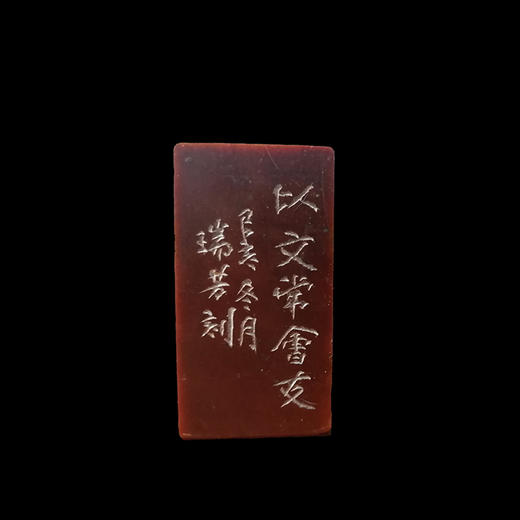 以文常會友
己亥冬月
瑞芳刻